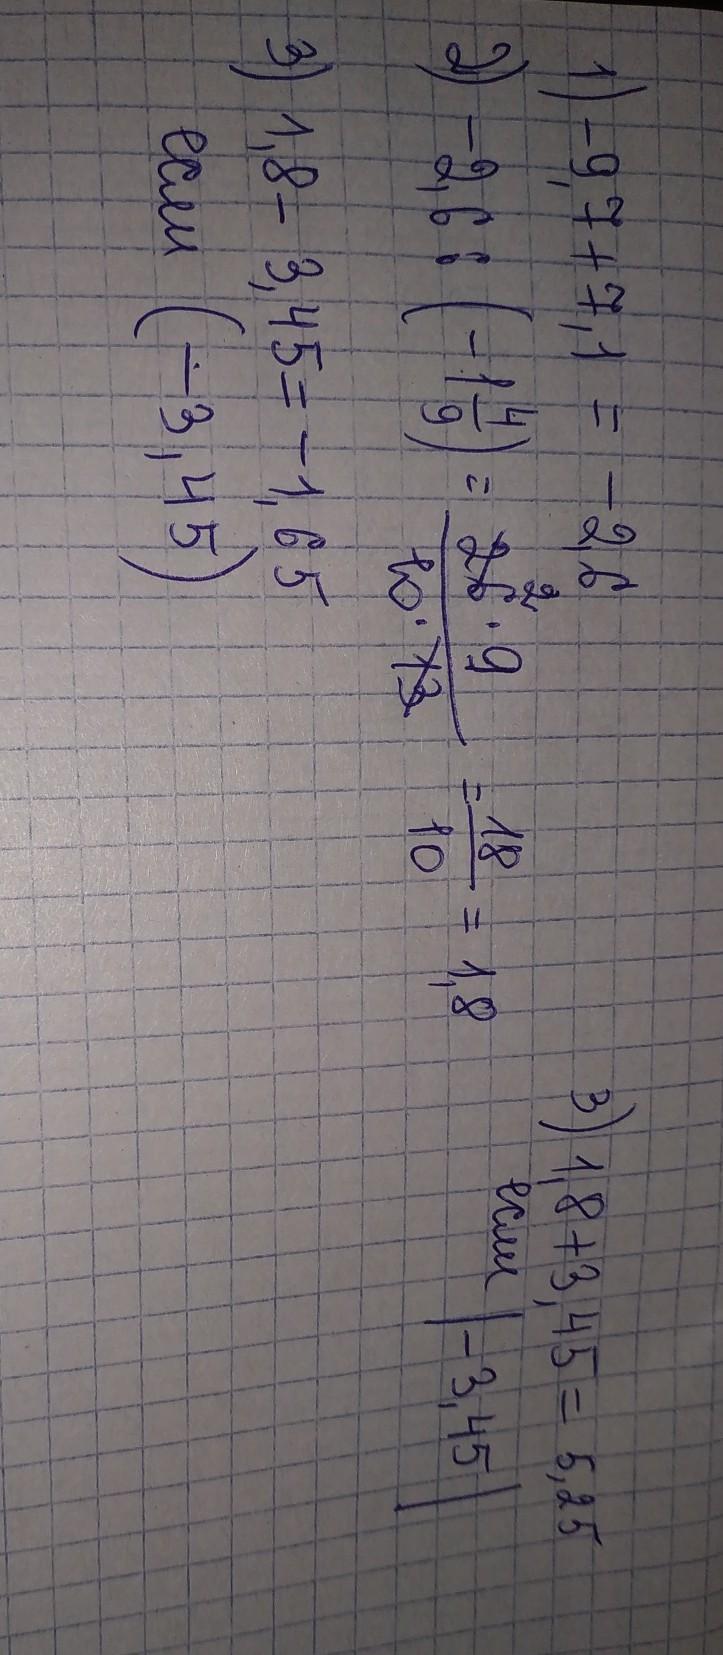 1) -9,7 + 7,1 = -2,6
2) -2,6 : (-1 4/9) = 26² · 9 / 10 · 13 = 18/10 = 1,8
3) 1,8 - 3,45 = -1,65
если (-3,45)
3) 1,8 + 3,45 = 5,25
если |-3,45|